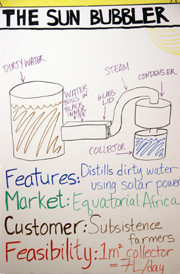 THE SUN BUBBLER
DIRTY WATER
STEAM
CONDENSER
WATER
BOILS IN
BLACK
GLASS
LID
COLLECTOR
Features: Distills dirty water
using solar power
Market: Equatorial Africa
Customer: Subsistence
farmers
Feasibility: 1m² collector
= 7L/day